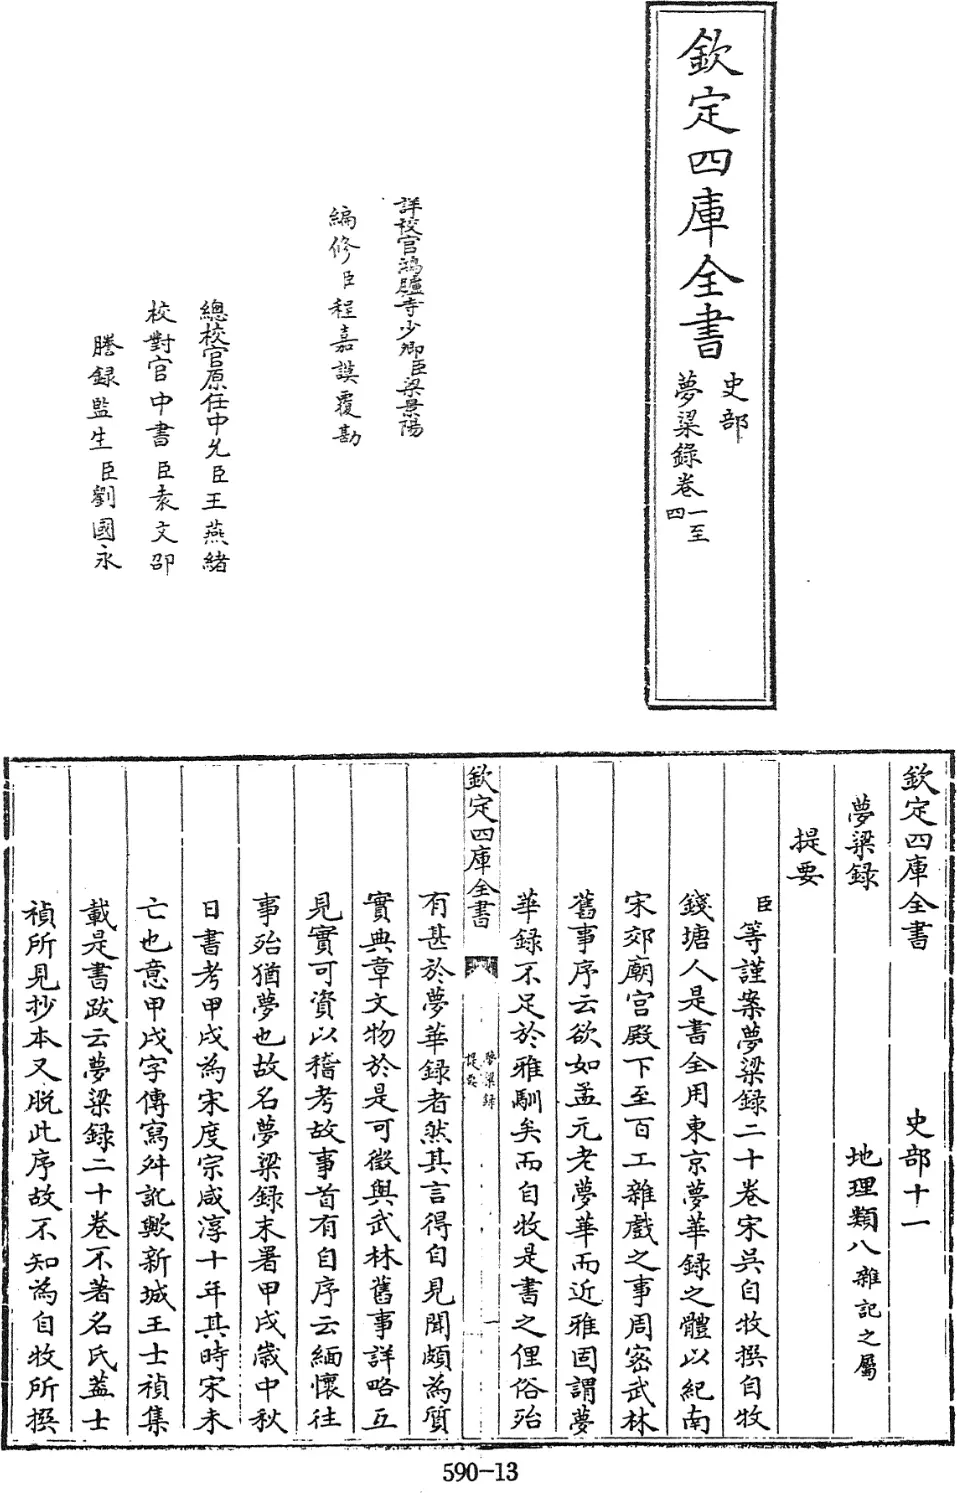 欽定四庫全書
史部
夢粱錄卷一至四
詳校官鴻臚寺少卿臣梁景陽
編修臣程嘉謨覆勘
總校官原任中允臣王燕緒
校對官中書臣袁文邵
謄錄監生臣劉國永
欽定四庫全書 史部十一
夢粱録 地理類八雜記之屬
提要
臣等謹案夢粱録二十卷宋吳自牧撰自牧
錢塘人是書全用東京夢華録之體以紀南
宋郊廟宫殿下至百工雜戲之事周密武林
舊事序云欲如孟元老夢華而近雅固謂夢
華録不足於雅馴矣而自牧是書之俚俗殆
欽定四庫全書
夢粱録
提要
一
有甚於夢華録者然其言得自見聞頗為質
實典章文物於是可徵與武林舊事詳略互
見實可資以稽考故事首有自序云緬懷往
事殆猶夢也故名夢粱録末署甲戌歲中秋
日書考甲戌為宋度宗咸淳十年其時宋未
亡也意甲戌字傳寫舛訛歟新城王士禎集
載是書跋云夢粱録二十卷不著名氏蓋士
禎所見抄本又脱此序故不知為自牧所撰
590-13